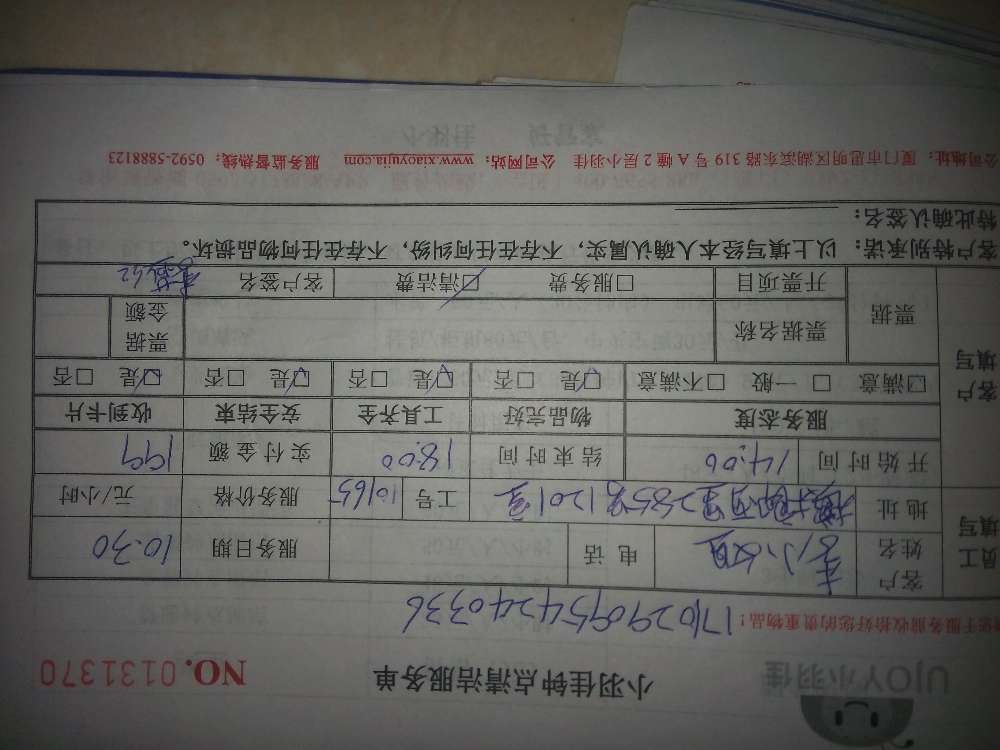 UJOY小羽佳 小羽佳钟点清洁服务单 NO.0131370
于服务前收拾好您的贵重物品! 1710290954240336
员工填写 客户姓名 李小姐 电话 服务日期 10.30
地址 2285号1201室 工号 10165 服务价格 元/小时
开始时间 14:00 结束时间 18:00 实付金额 199
客户填写 服务态度 物品完好 工具齐全 安全结束 收到卡片
☑满意 □一般 □不满意 ☑是 □否 ☑是 □否 ☑是 □否 ☑是 □否
票据 票据名称 票据金额
开票项目 □服务费 ☑清洁费 客户签名
客户特别承诺: 以上填写经本人确认属实,不存在任何纠纷,不存在任何物品损坏。
特此确认签名:
公司地址: 厦门市思明区湖滨东路 319 号 A 幢 2 层小羽佳 公司网站: www.xiaoyujia.com 服务监督热线: 0592-5888123